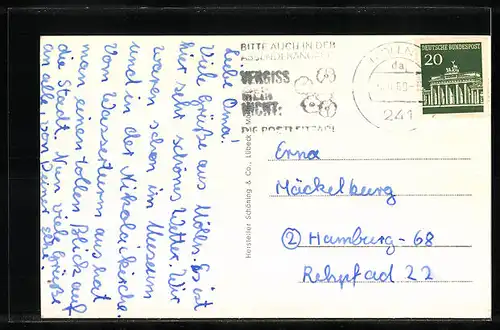 Liebe Oma!
Viele Grüße aus Mölln. Es ist
hier sehr schönes Wetter. Wir
waren schon im Museum
und in der Nikolaikirche.
Vom Wasserturm aus hat
man einen tollen Blick auf
die Stadt. Nun viele Grüße
an alle, von Deiner
Hersteller Schöning & Co., Lübeck
BITTE AUCH IN DER
ABSENDERANGABE
VERGISS
MEIN
NICHT:
DIE POSTLEITZAHL
da
241
DEUTSCHE BUNDESPOST
20
Erna
Mäckelburg
② Hamburg-68
Rehpfad 22